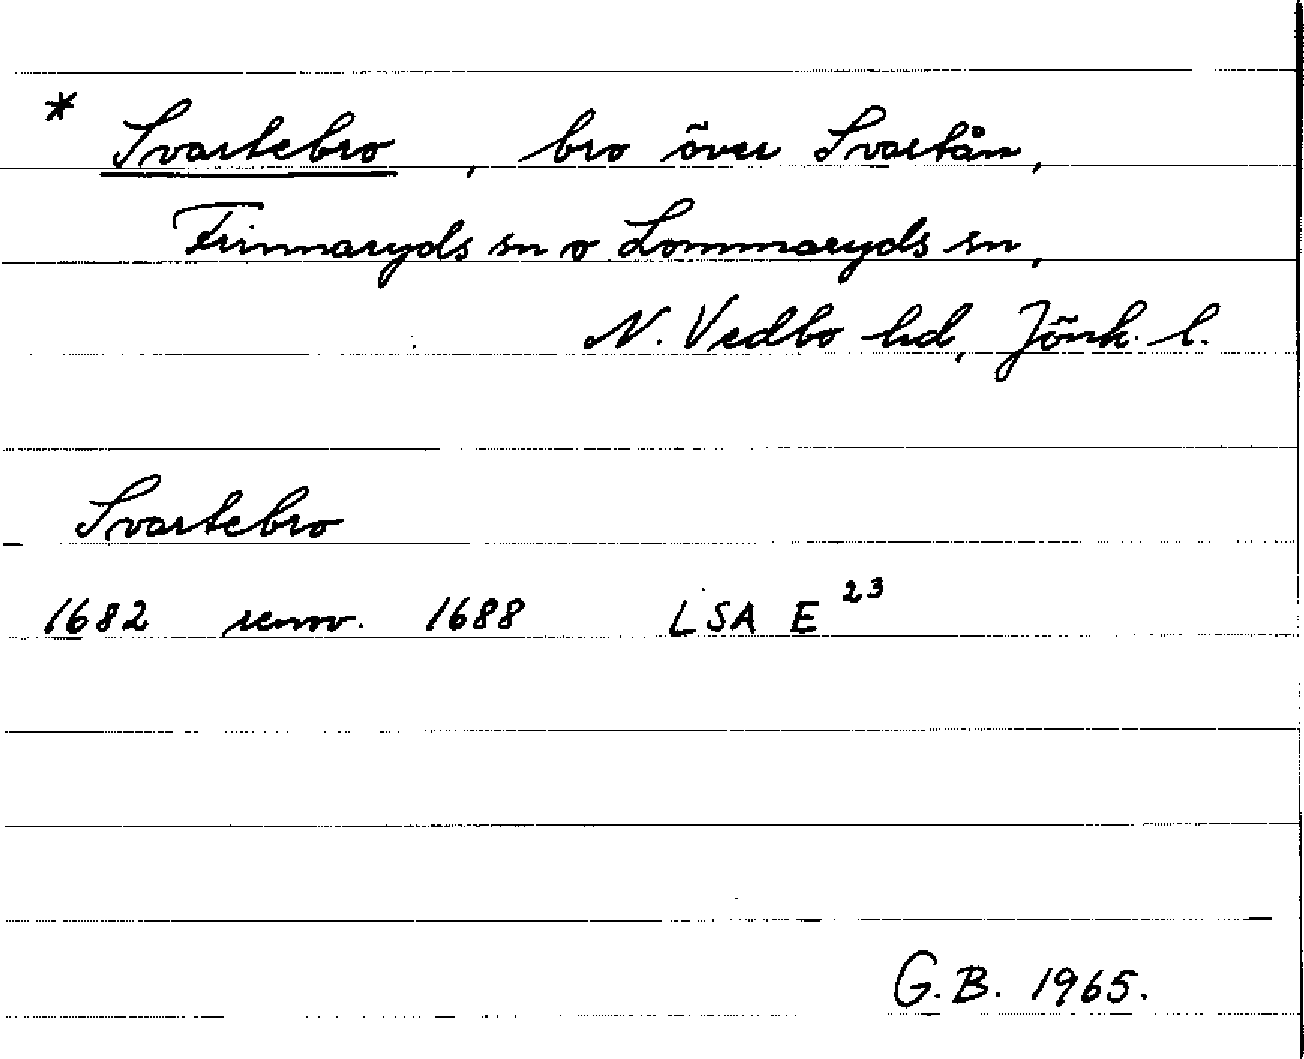 * Svartebro, bro över Svartån,
Frinnaryds sn o Lommaryds sn,
N. Vedbo hd, Jönk. l.
Svartebro
1682 renov. 1688 LSA E 23
G.B. 1965.